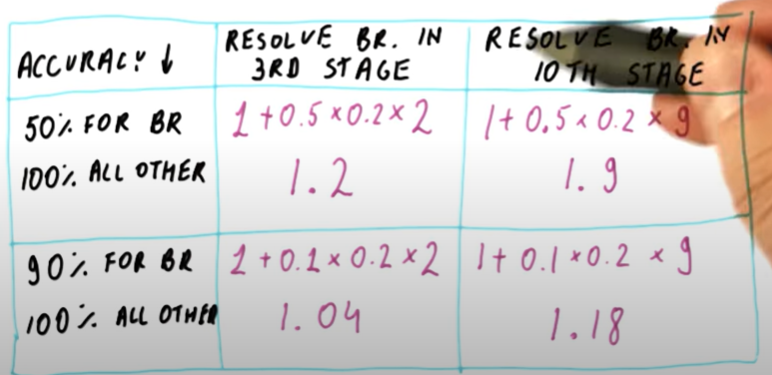 ACCURACY ↓
RESOLVE BR. IN
3RD STAGE
RESOLVE BR. IN
10TH STAGE
50% FOR BR
100% ALL OTHER
1 + 0.5 × 0.2 × 2
1.2
1 + 0.5 × 0.2 × 9
1.9
90% FOR BR
100% ALL OTHER
1 + 0.1 × 0.2 × 2
1.04
1 + 0.1 × 0.2 × 9
1.18